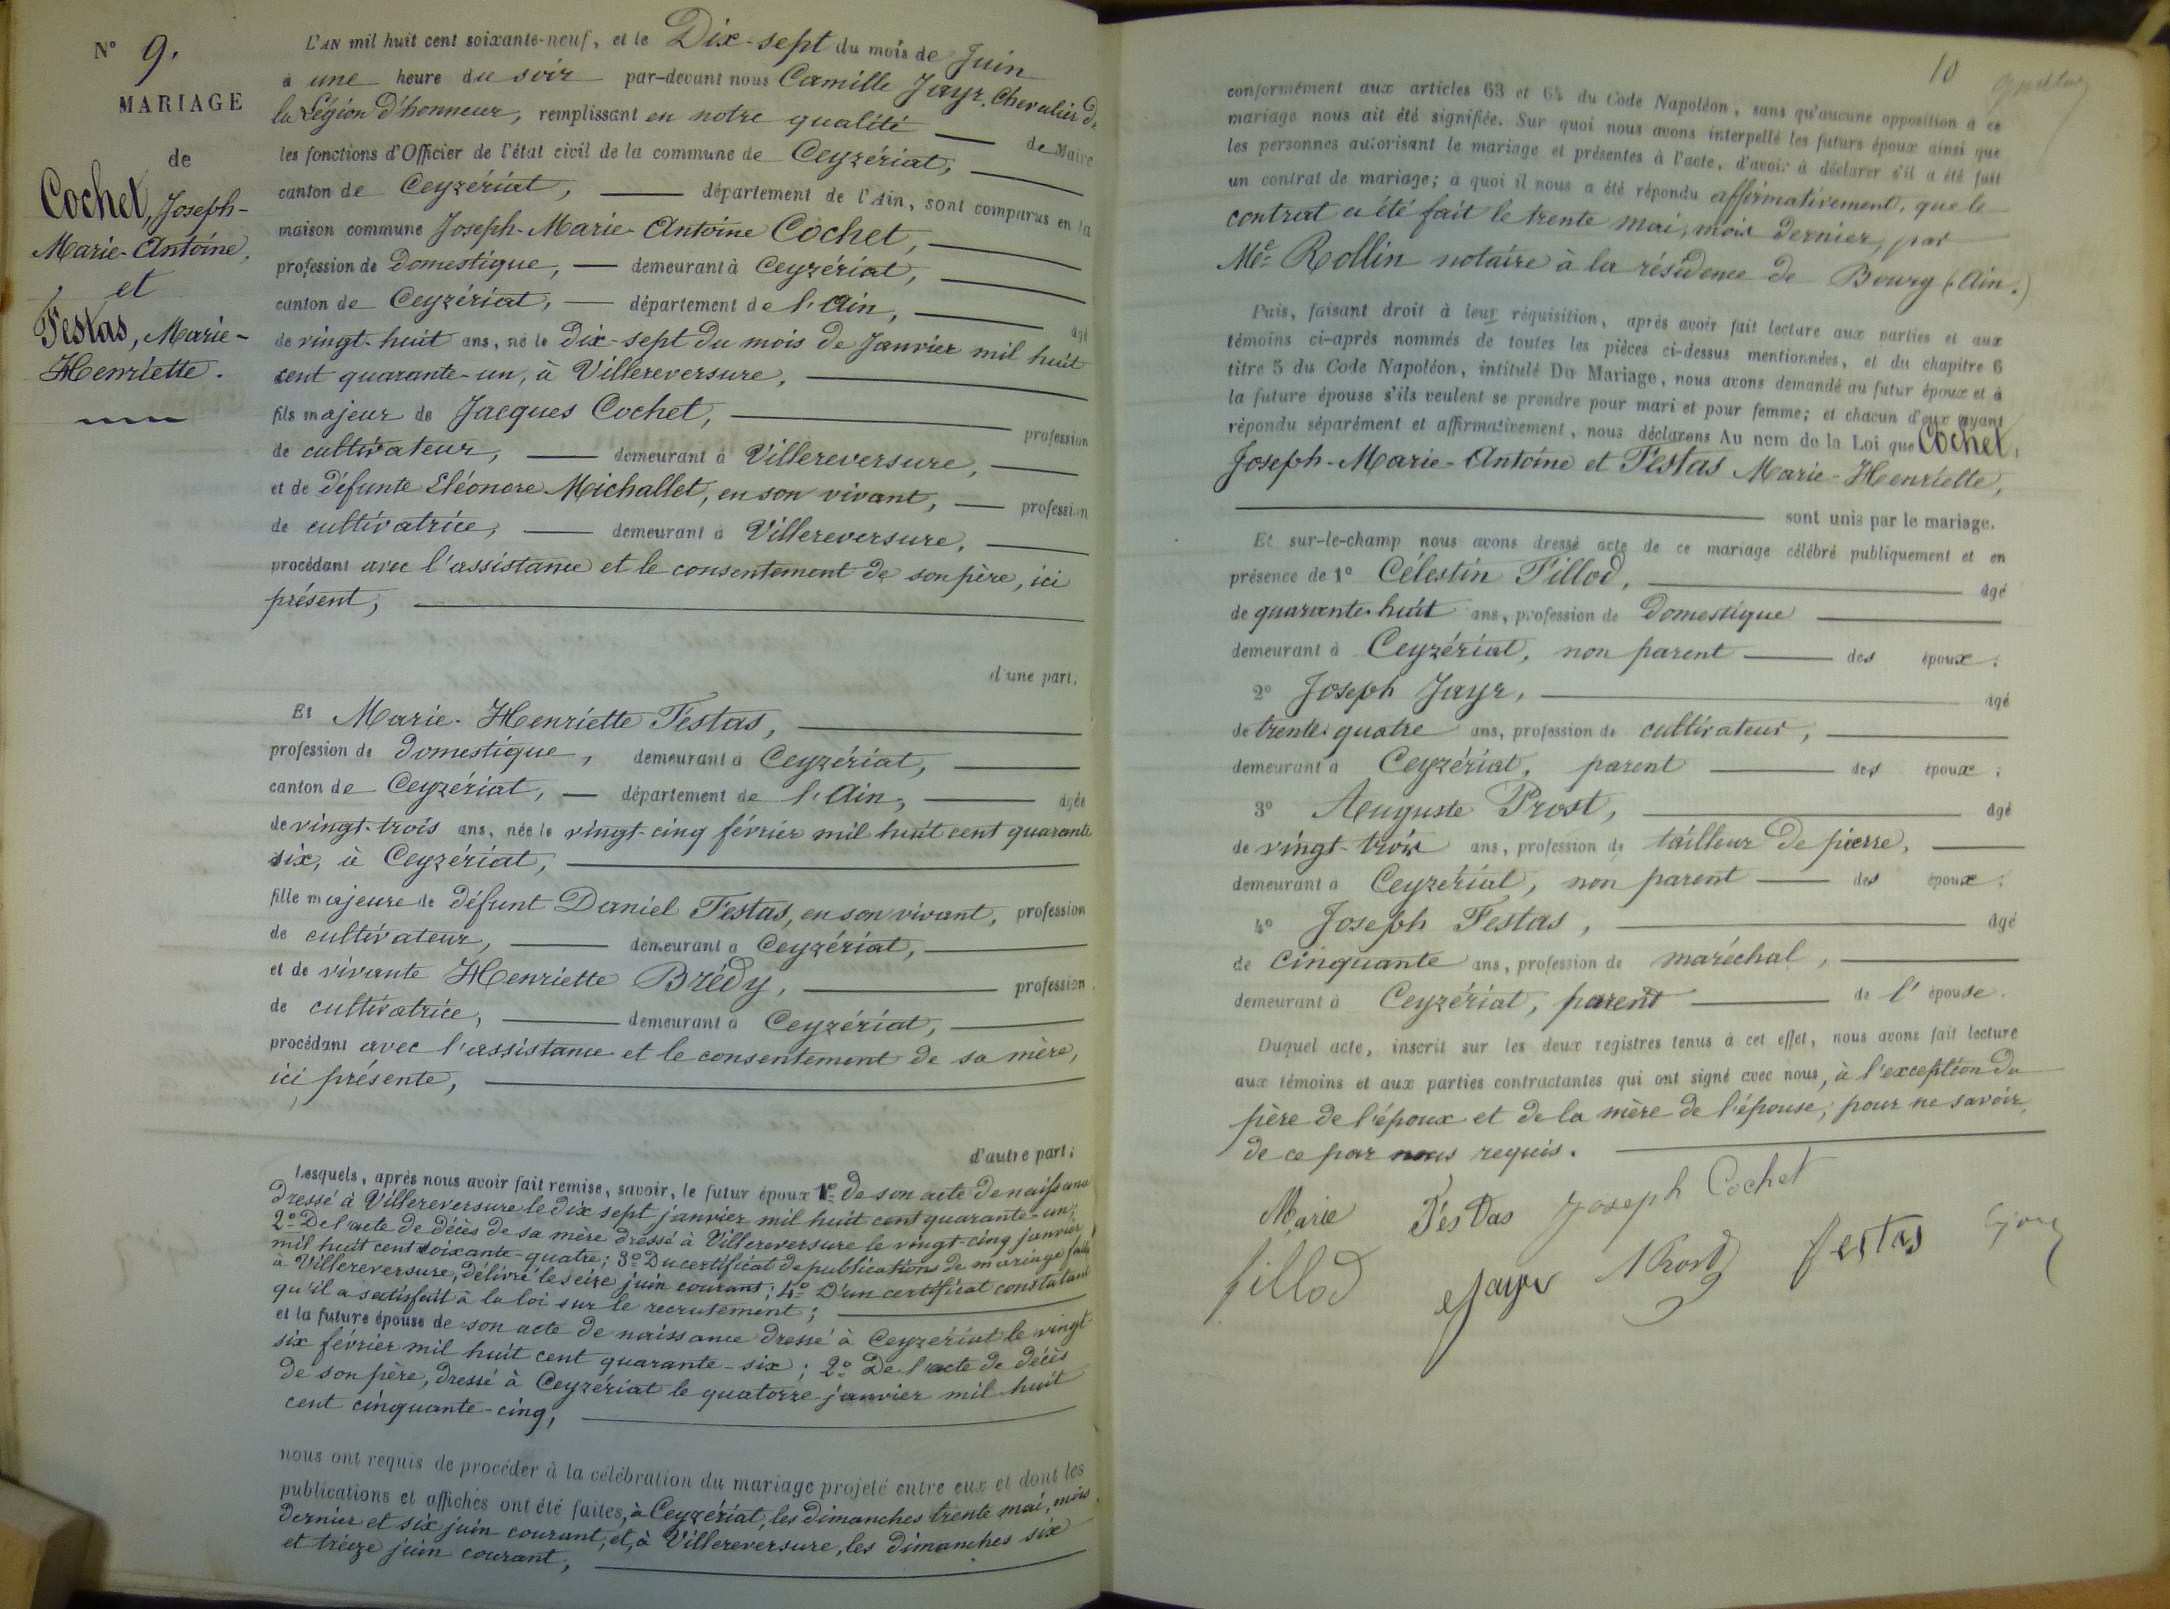 N° 9.
MARIAGE
de
Cochet, Joseph-
Marie-Antoine,
et
Festas, Marie-
Henriette.
L'AN mil huit cent soixante-neuf, et le Dix-sept du mois de Juin
à une heure du soir par-devant nous Camille Jayr, Chevalier de
la Légion d'honneur, remplissant en notre qualité de Maire
les fonctions d'Officier de l'état civil de la commune de Ceyzériat,
canton de Ceyzériat, département de l'Ain, sont comparus en la
maison commune Joseph-Marie-Antoine Cochet,
profession de domestique, demeurant à Ceyzériat,
canton de Ceyzériat, département de l'Ain, âgé
de vingt-huit ans, né le dix-sept du mois de Janvier mil huit
cent quarante-un, à Villereversure,
fils majeur de Jacques Cochet, profession
de cultivateur, demeurant à Villereversure,
et de défunte Eléonore Michallet, en son vivant, profession
de cultivatrice, demeurant à Villereversure,
procédant avec l'assistance et le consentement de son père, ici
présent,
d'une part,
Et Marie-Henriette Festas,
profession de domestique, demeurant à Ceyzériat,
canton de Ceyzériat, département de l'Ain, âgée
de vingt-trois ans, née le vingt-cinq février mil huit cent quarante
six, à Ceyzériat,
fille majeure de défunt Daniel Festas, en son vivant, profession
de cultivateur, demeurant à Ceyzériat,
et de vivante Henriette Brédy, profession
de cultivatrice, demeurant à Ceyzériat,
procédant avec l'assistance et le consentement de sa mère,
ici présente,
d'autre part;
Lesquels, après nous avoir fait remise, savoir, le futur époux 1° de son acte de naissance
dressé à Villereversure le dix sept janvier mil huit cent quarante-un;
2° De l'acte de décès de sa mère dressé à Villereversure le vingt-cinq janvier
mil huit cent soixante-quatre; 3° Du certificat de publications de mariage faites
à Villereversure, délivré le seize juin courant; 4° D'un certificat constatant
qu'il a satisfait à la loi sur le recrutement;
et la future épouse de son acte de naissance dressé à Ceyzériat le vingt
six février mil huit cent quarante-six; 2° De l'acte de décès
de son père, dressé à Ceyzériat le quatorze janvier mil huit
cent cinquante-cinq,
nous ont requis de procéder à la célébration du mariage projeté entre eux et dont les
publications et affiches ont été faites, à Ceyzériat, les dimanches trente mai, mois
dernier et six juin courant, et, à Villereversure, les dimanches six
et treize juin courant,
10
conformément aux articles 63 et 64 du Code Napoléon, sans qu'aucune opposition à ce
mariage nous ait été signifiée. Sur quoi nous avons interpellé les futurs époux ainsi que
les personnes autorisant le mariage et présentes à l'acte, d'avoir à déclarer s'il a été fait
un contrat de mariage; à quoi il nous a été répondu affirmativement, que le
contrat a été fait le trente mai, mois dernier, par
Me Rollin notaire à la résidence de Bourg (Ain.)
Puis, faisant droit à leur réquisition, après avoir fait lecture aux parties et aux
témoins ci-après nommés de toutes les pièces ci-dessus mentionnées, et du chapitre 6
titre 5 du Code Napoléon, intitulé Du Mariage, nous avons demandé au futur époux et à
la future épouse s'ils veulent se prendre pour mari et pour femme; et chacun d'eux ayant
répondu séparément et affirmativement, nous déclarons Au nom de la Loi que Cochet,
Joseph-Marie-Antoine et Festas Marie-Henriette,
sont unis par le mariage.
Et sur-le-champ nous avons dressé acte de ce mariage célébré publiquement et en
présence de 1° Célestin Fillod, âgé
de quarante-huit ans, profession de domestique
demeurant à Ceyzériat, non parent des époux;
2° Joseph Jayr, âgé
de trente-quatre ans, profession de cultivateur,
demeurant à Ceyzériat, parent des époux;
3° Auguste Prost, âgé
de vingt-trois ans, profession de tailleur de pierre,
demeurant à Ceyzériat, non parent des époux;
4° Joseph Festas, âgé
de cinquante ans, profession de maréchal,
demeurant à Ceyzériat, parent de l'épouse.
Duquel acte, inscrit sur les deux registres tenus à cet effet, nous avons fait lecture
aux témoins et aux parties contractantes qui ont signé avec nous, à l'exception du
père de l'époux et de la mère de l'épouse, pour ne savoir,
de ce par nous requis.
Marie Festas Joseph Cochet
fillod Jayr A Prost festas